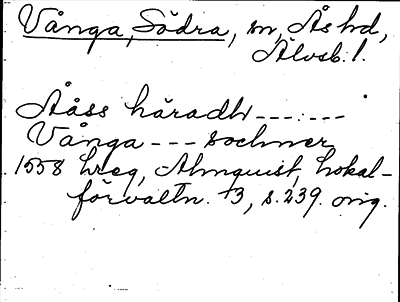 Vånga, Södra, sn, Ås hd,
Älvsb. l.
Ååss häradh -------
Vånga --- sochner
1558 hreg, Almquist, Lokal-
förvaltn. 3, s. 239. orig.